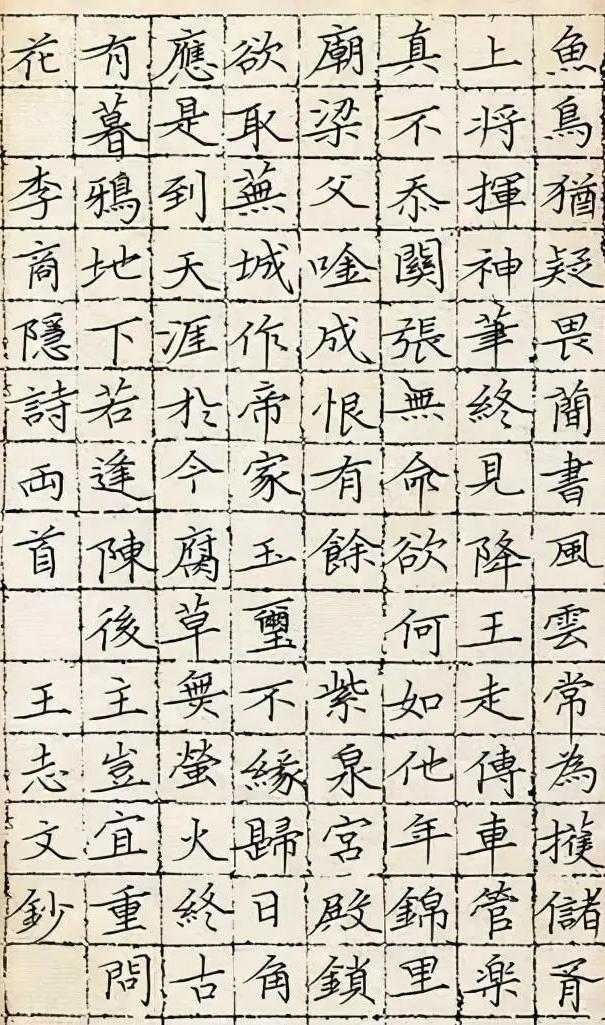 魚鳥猶疑畏簡書風雲常為擭儲胥
上將揮神筆終見降王走傳車管楽
真不忝關張無命欲何如他年錦里
廟梁父唫成恨有餘 紫泉宮殿鎖
欲取蕪城作帝家玉璽不緣歸日角
應是到天涯於今腐草無螢火終古
有暮鴉地下若逢陳後主豈宜重問
花 李商隱詩兩首 王志文鈔